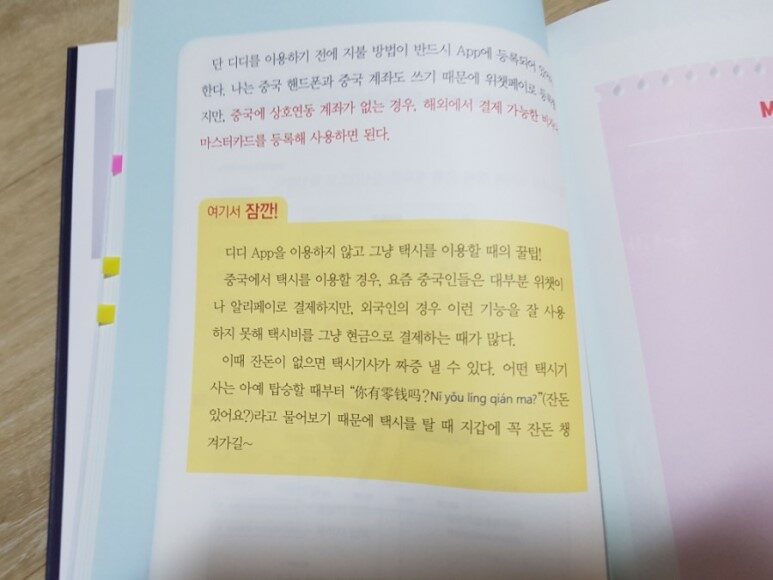 단 디디를 이용하기 전에 지불 방법이 반드시 App에 등록되어
한다. 나는 중국 핸드폰과 중국 계좌도 쓰기 때문에 위챗페이로
지만, 중국에 상호연동 계좌가 없는 경우, 해외에서 결제 가능한
마스터카드를 등록해 사용하면 된다.
여기서 잠깐!
디디 App을 이용하지 않고 그냥 택시를 이용할 때의 꿀팁!
중국에서 택시를 이용할 경우, 요즘 중국인들은 대부분 위챗이
나 알리페이로 결제하지만, 외국인의 경우 이런 기능을 잘 사용
하지 못해 택시비를 그냥 현금으로 결제하는 때가 많다.
이때 잔돈이 없으면 택시기사가 짜증 낼 수 있다. 어떤 택시기
사는 아예 탑승할 때부터 “你有零钱吗? Nǐ yǒu líng qián ma?”(잔돈
있어요?)라고 물어보기 때문에 택시를 탈 때 지갑에 꼭 잔돈 챙
겨가길~
M